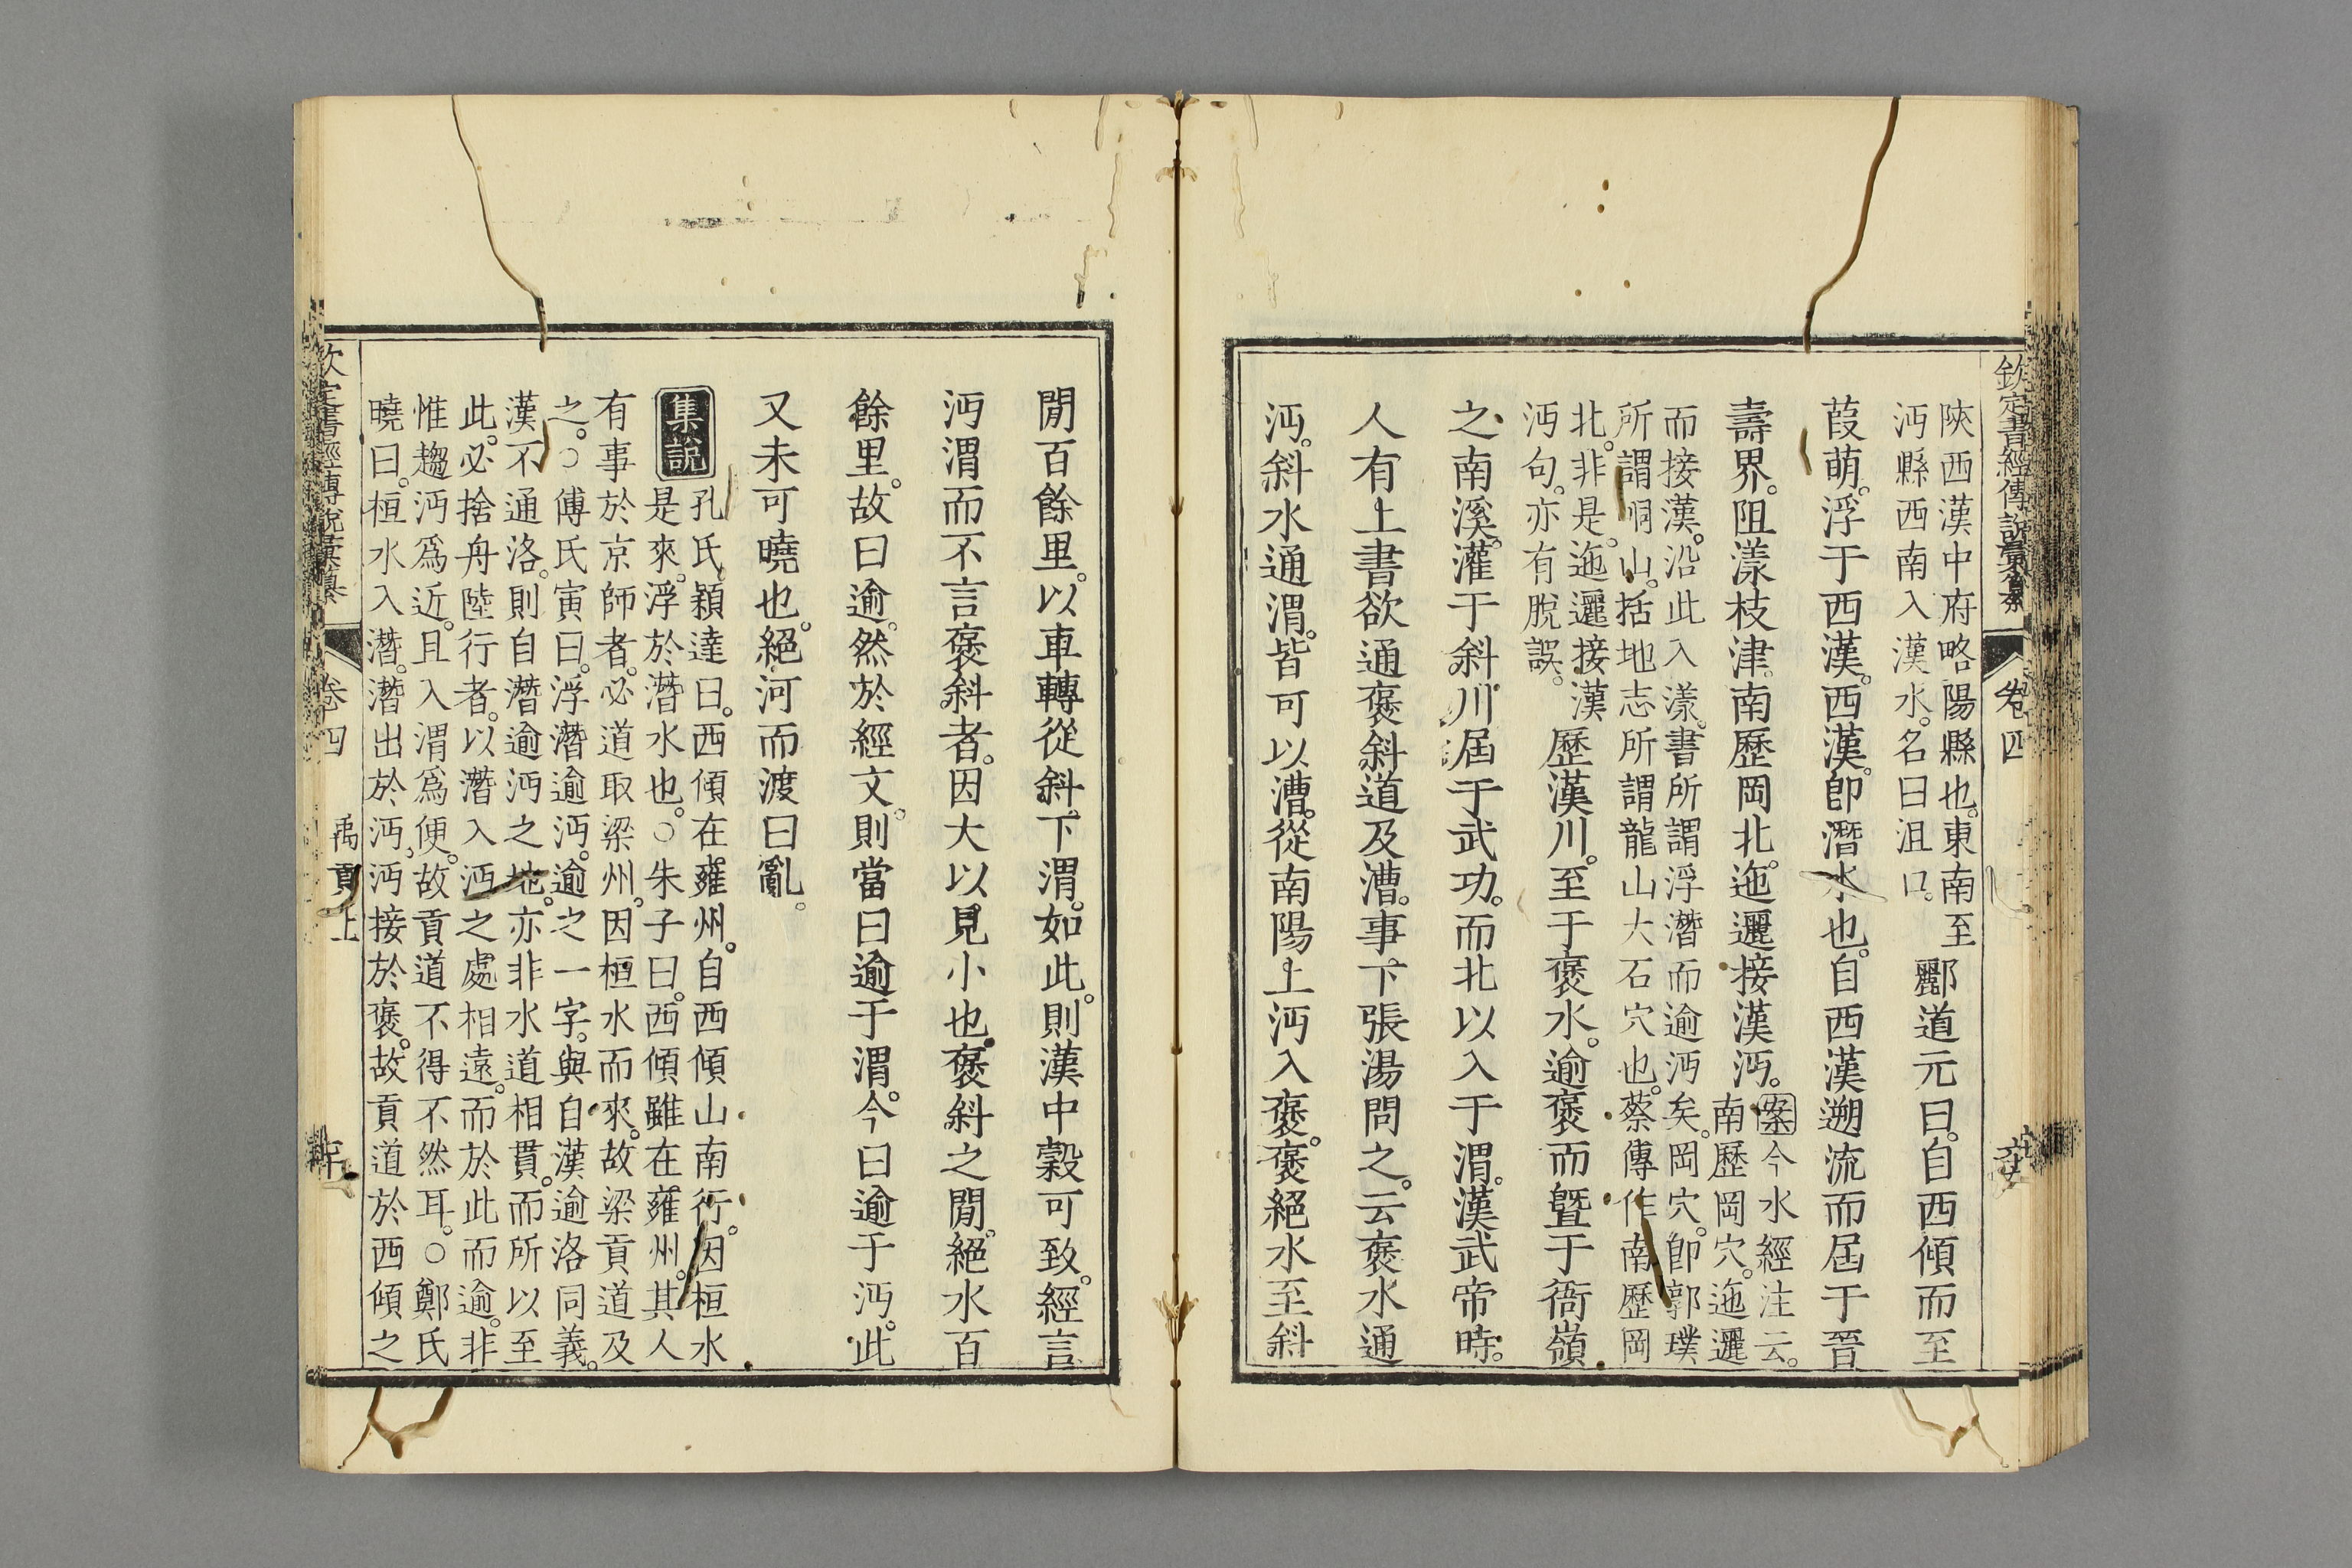 欽定書經傳說彙纂　卷四
陝西漢中府略陽縣也。東南至
沔縣西南入漢水。名曰沮口。
酈道元曰。自西傾而至
葭萌。浮于西漢。西漢。卽潛水也。自西漢遡流而屆于晉
壽界。阻漾枝津。南歷岡北。迤邐接漢沔。
案今水經注云。
南歷岡穴。迤邐
而接漢。沿此入漾。書所謂浮潛而逾沔矣。岡穴。卽郭璞
所謂峒山。括地志所謂龍山大石穴也。蔡傳作南歷岡
北。非是。迤邐接漢
沔句。亦有脫誤。
歷漢川。至于褒水。逾褒而曁于衙嶺
之南溪。灌于斜川。屆于武功。而北以入于渭。漢武帝時。
人有上書欲通褒斜道及漕。事下張湯問之。云褒水通
沔。斜水通渭。皆可以漕。從南陽上沔入褒。褒絕水至斜
閒百餘里。以車轉從斜。下渭。如此。則漢中穀可致。經言
沔渭而不言褒斜者。因大以見小也。褒斜之閒。絕水百
餘里。故曰逾。然於經文。則當曰逾于渭。今曰逾于沔。此
又未可曉也。絕河而渡曰亂。
集說
孔氏穎達曰。西傾在雍州。自西傾山南行。因桓水
是來。浮於潛水也。○朱子曰。西傾雖在雍州。其人
有事於京師者。必道取梁州。因桓水而來。故梁貢道及
之。○傅氏寅曰。浮潛逾沔。逾之一字。與自漢逾洛同義。
漢不通洛。則自潛逾沔之地。亦非水道相貫。而所以至
此。必捨舟陸行者。以潛入沔之處相遠。而於此而逾。非
惟趨沔爲近。且入渭爲便。故貢道不得不然耳。○鄭氏
曉曰。桓水入潛。潛出於沔。沔接於褒。故貢道於西傾之
欽定書經傳說彙纂　卷四　禹貢上